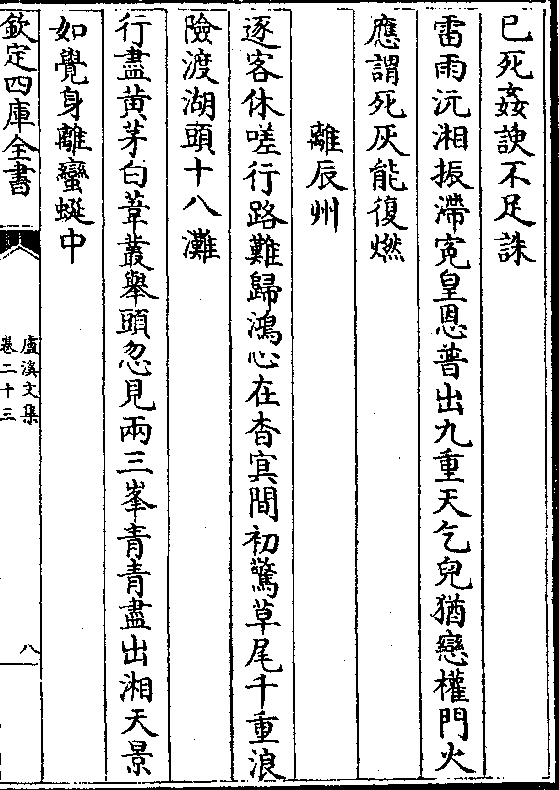 已死姦諛不足誅
雷雨沅湘振滯寃皇恩普出九重天乞兒猶戀權門火
應謂死灰能復燃
離辰州
逐客休嗟行路難歸鴻心在杳冥間初驚草尾千重浪
險渡湖頭十八灘
行盡黄茅白葦叢舉頭忽見兩三峯青青盡出湘天景
如覺身離蠻蜒中
欽定四庫全書
盧溪文集
卷二十三
八